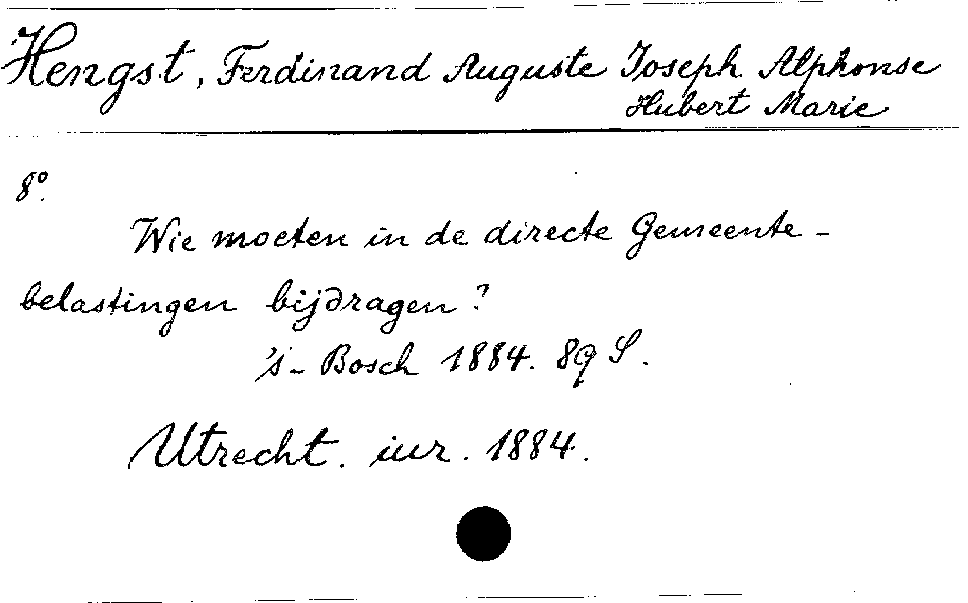 Hengst, Ferdinand Auguste Joseph Alphonse
Hubert Marie
8°.
Wie moeten in de directe Gemeente-
belastingen bijdragen?
's-Bosch 1884. 89 S.
Utrecht. iur. 1884.